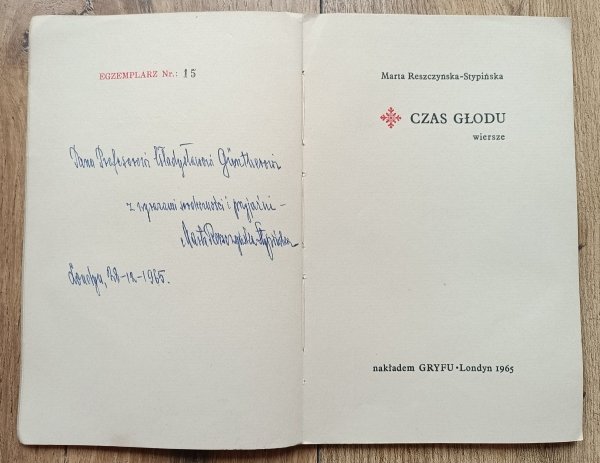 EGZEMPLARZ Nr.: 15
Panu Profesorowi Władysławowi Güntherowi
z wyrazami serdeczności i przyjaźni –
Marta Reszczyńska-Stypińska
Londyn, 28-12-1965.
Marta Reszczynska-Stypińska
CZAS GŁODU
wiersze
nakładem GRYFU • Londyn 1965